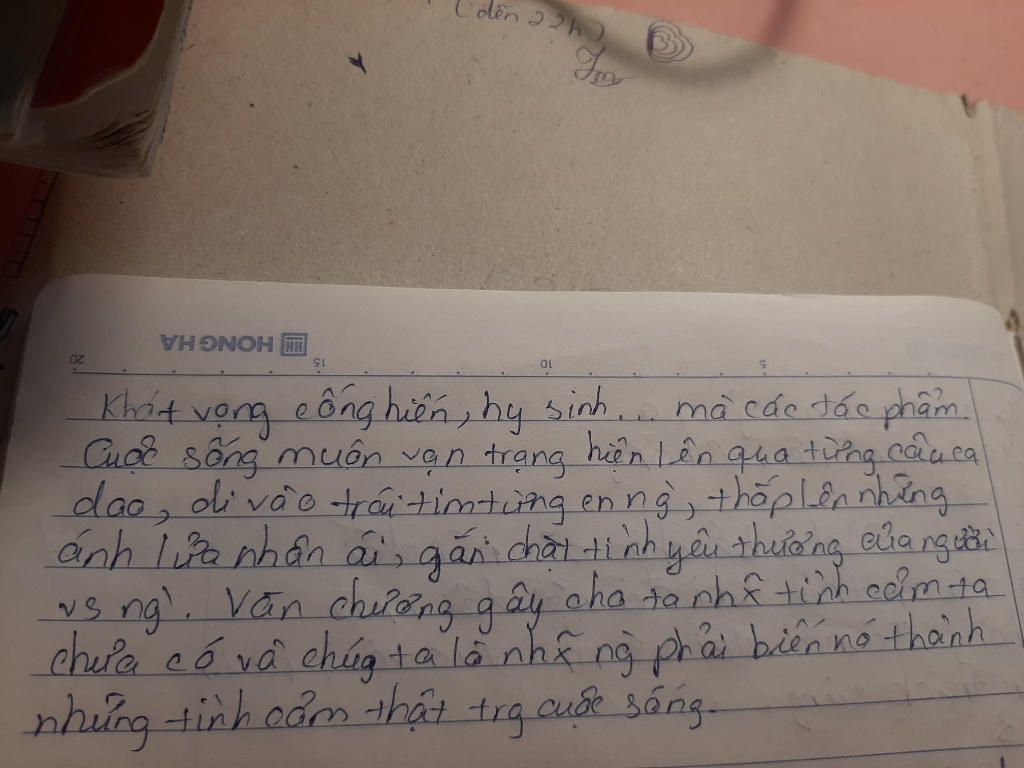 (đến 22h)
HONG HA
20 15 10 5
Khát vọng cống hiến, hy sinh... mà các tác phẩm.
Cuộc sống muôn vạn trạng hiện lên qua từng câu ca
dao, đi vào trái tim từng en ng`, thắp lên những
ánh lửa nhân ái, gắn chặt tình yêu thương của người
vs ng`. Văn chương gây cho ta nhx̃ tình cảm ta
chưa có và chúg ta là nhx̃ ng` phải biến nó thành
những tình cảm thật trg cuộc sống.